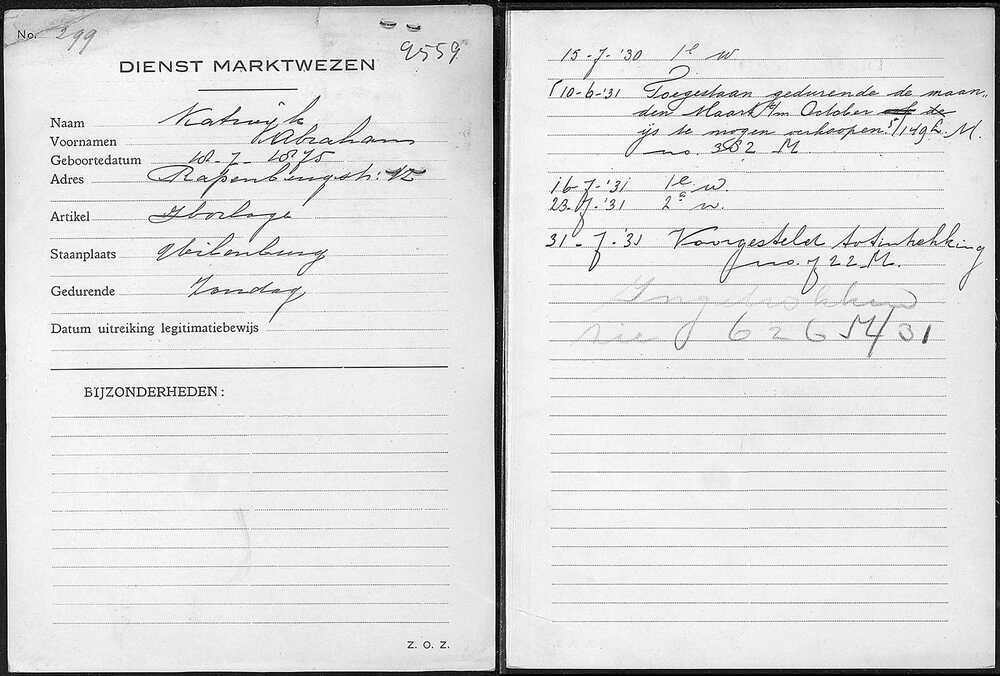 No. 299
9559
DIENST MARKTWEZEN
Naam Katwijk
Voornamen Abraham
Geboortedatum 18-7-1875
Adres Rapenburgstr: 12
Artikel
Staanplaats Uilenburg
Gedurende Zondag
Datum uitreiking legitimatiebewijs
BIJZONDERHEDEN:
Z. O. Z.
15-7-'30 1e w
10-6-'31 Toegestaan gedurende de maan„
den Maart t/m October
ijs te mogen verkoopen. 5/149 L. M.
no. 382 M.
16-7-'31 1e w.
23-7-'31 2e w.
31-7-'31 Voorgesteld tot intrekking
no. 722 M.
Ingetrokken
zie 626 M/31